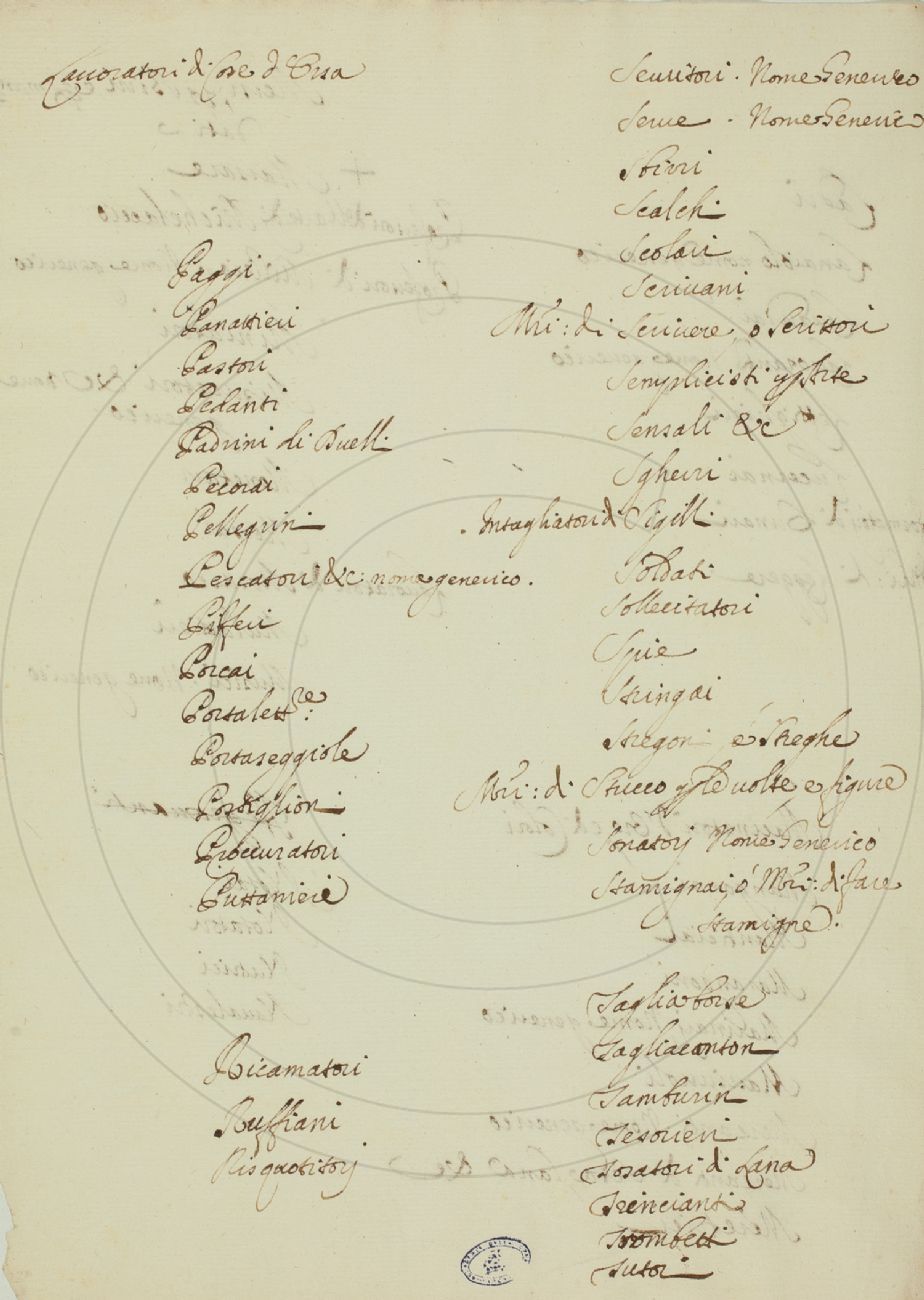 Lavoratori di Cose d'Erba
Paggi
Panattieri
Pastori
Pedanti
Padrini di Duelli
Pecorai
Pellegrini
Pescatori &c: nome generico.
Pifferi
Porcai
Portalettre:
Portaseggiole
Postiglioni
Proccuratori
Puttanieri
Ricamatori
Ruffiani
Risquotitorj
Servitori. Nome Generico
Serve. Nome Generico
Sbirri
Scalchi
Scolari
Scrivani
Mri: di Scrivere, ó Scrittori
Semplicisti
Sensali &c
Sgherri
Intagliatori di Sigilli
Soldati
Sollecitatori
Spie
Stringai
Stregoni, é Streghe
Mri: di Stucco p le volte, e figure
Sonatorj Nome Generico
Stamignai, ó Mri: di fare
stamigne.
Tagliaborse
Tagliacantoni
Tamburini
Tesorieri
Tosatori di Lana
Trincianti
Trombetti
Tutori